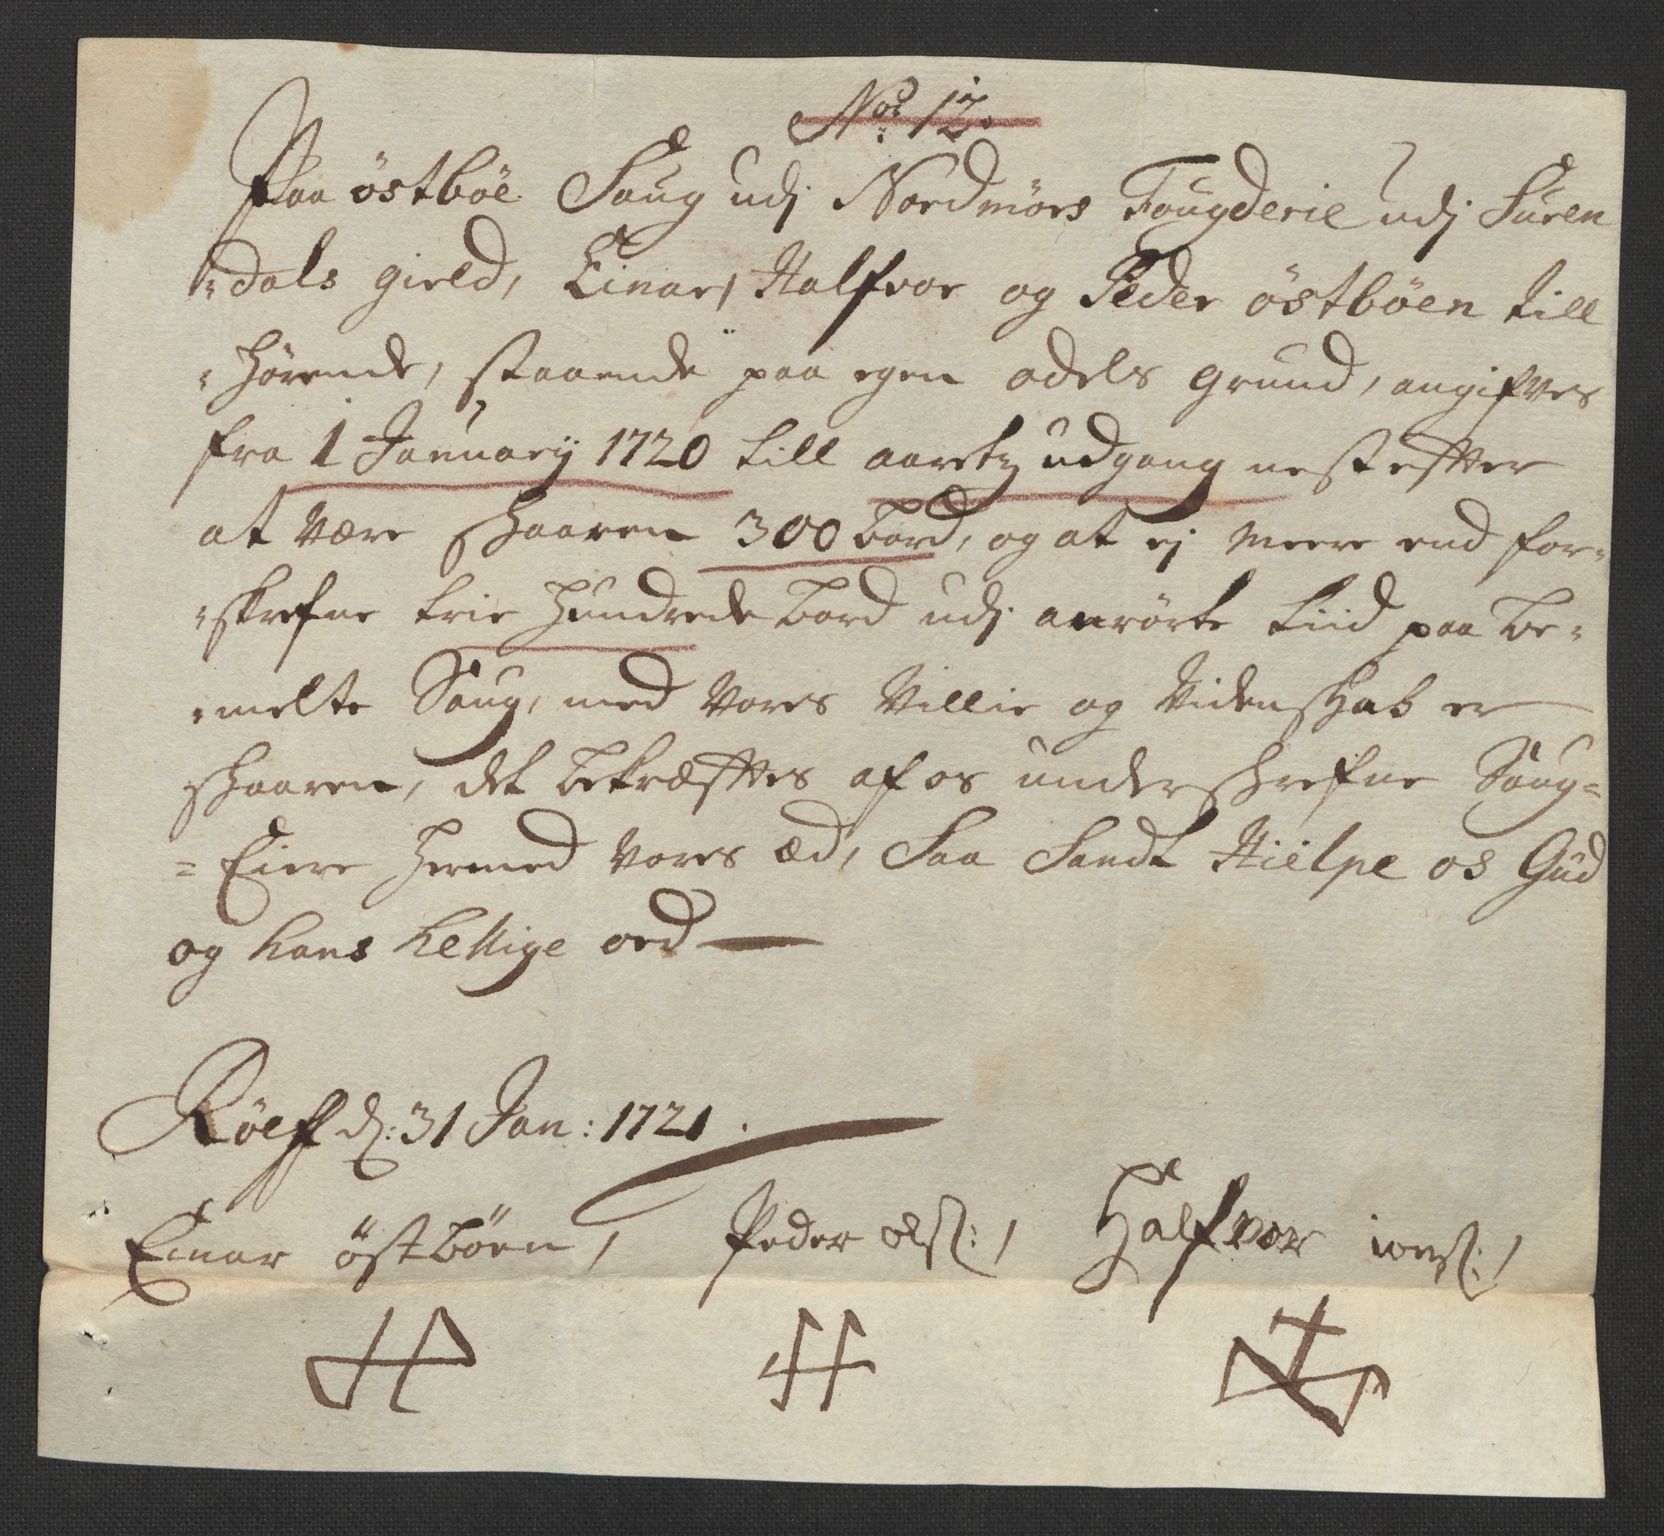 No: 12.
Paa östböe Saug udj Nordmörs Fougderie udj Suren
-dals gield, Einar, Halfvor og Peder östböen till
-hörende, staaende paa egen odels grund, angifves
fra 1 January 1720 till aaretz udgang nest effter
at være skaaren 300 bord, og at ej meere end for-
-skrefne trie hundrede bord udj anrörte tiid paa be-
-melte Saug, med vores villie og videnskab er
skaaren, det bekræfftes af os underskrefne Saug-
-Eiere hermed vores æd, Saa Sandt Hielpe os Gud
og hans hellige ord
Röeff d: 31 Jan: 1721.
Einar östböen, Peder olss:, Halfvor